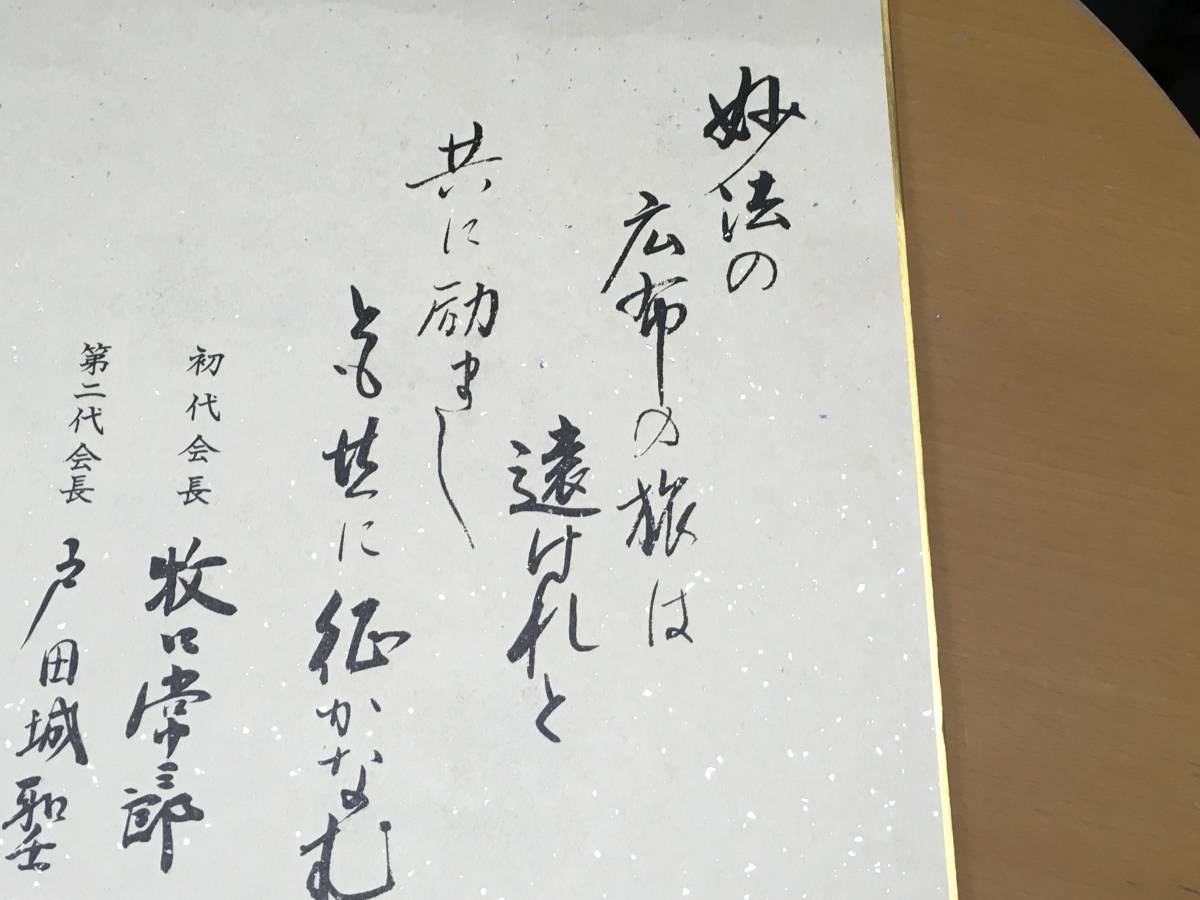 妙法の
広布の旅は
遠けれと
共に励まし
とも共に征かなむ
初代会長 牧口常三郎
第二代会長 戸田城聖